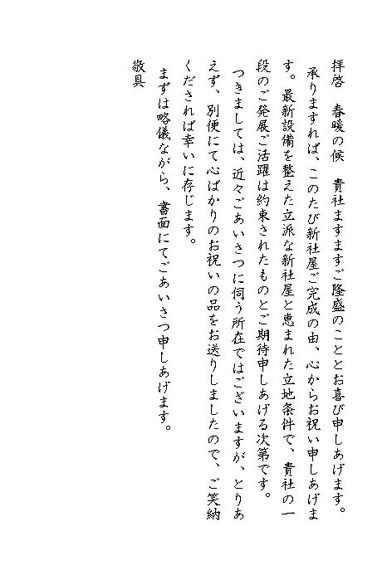 拝啓　春暖の候　貴社ますますご隆盛のこととお喜び申しあげます。
　承りますれば、このたび新社屋ご完成の由、心からお祝い申しあげま
す。最新設備を整えた立派な新社屋と恵まれた立地条件で、貴社の一
段のご発展ご活躍は約束されたものとご期待申しあげる次第です。
　つきましては、近々ごあいさつに伺う所在ではございますが、とりあ
えず、別便にて心ばかりのお祝いの品をお送りしましたので、ご笑納
くだされば幸いに存じます。
　まずは略儀ながら、書面にてごあいさつ申しあげます。
敬具